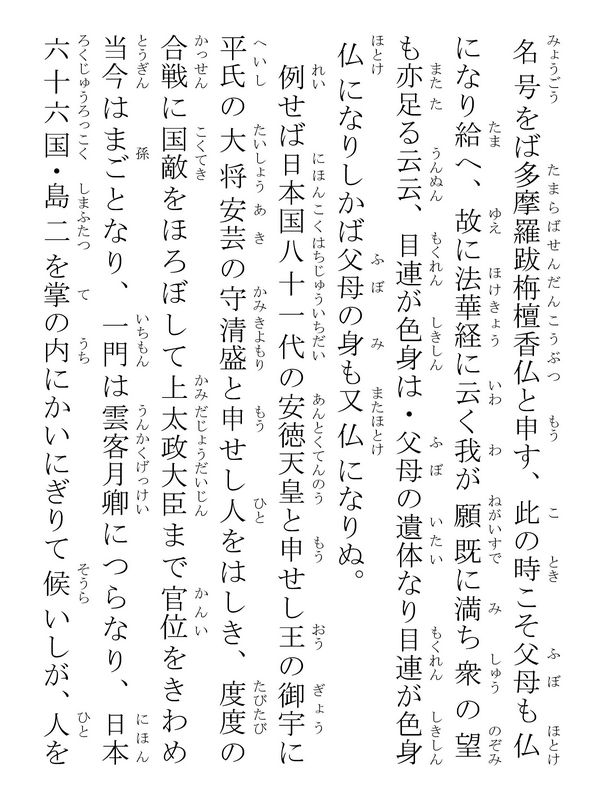 名号をば多摩羅跋栴檀香仏と申す、此の時こそ父母も仏
になり給へ、故に法華経に云く我が願既に満ち衆の望
も亦足る云云、目連が色身は・父母の遺体なり目連が色身
仏になりしかば父母の身も又仏になりぬ。
例せば日本国八十一代の安徳天皇と申せし王の御宇に
平氏の大将安芸の守清盛と申せし人をはしき、度度の
合戦に国敵をほろぼして上太政大臣まで官位をきわめ
当今はまごとなり、一門は雲客月卿につらなり、日本
六十六国・島二を掌の内にかいにぎりて候いしが、人を